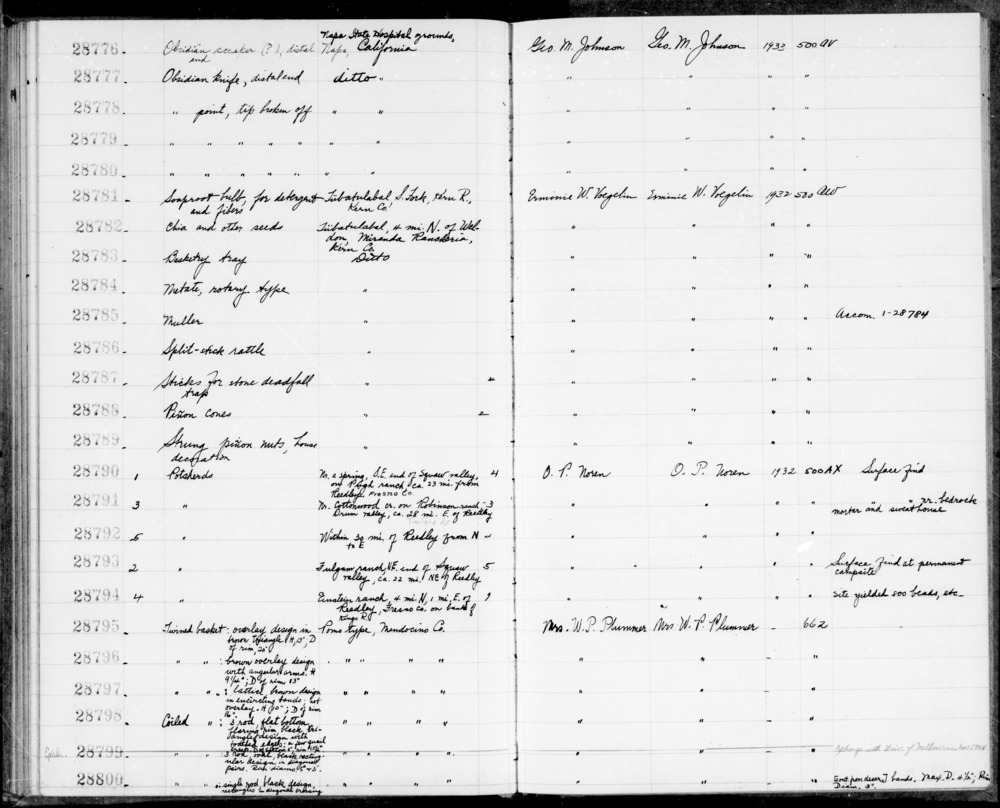 Napa State Hospital grounds,
28776 Obsidian scraper (?), distal Napa, California Geo. M. Johnson Geo. M. Johnson 1933 500 AV
end
28777 Obsidian knife, distal end ditto " " " " "
28778 " point, tip broken off " " " " " "
28779 " " " " " " " " " " "
28780 " " " " " " " " " " "
28781 Soaproot bulb, for detergent Tübatulabal, S. Fork, Kern R., Erminie W. Voegelin Erminie W. Voegelin 1932 500 AW
and fibers Kern Co.
28782 Chia and other seeds Tübatulabal, 4 mi. N. of Wel- " " " "
don, Miranda Rancheria,
Kern Co.
28783 Basketry tray Ditto " " " "
28784 Metate, rotary type " " " " "
28785 Muller " " " " " Accom. 1-28784
28786 Split-stick rattle " " " " "
28787 Sticks for stone deadfall " 4 " " " "
trap
28788 Piñon cones " 2 " " " "
28789 Strung piñon nuts, house " " " " "
decoration
28790 1 Potsherds Nr. a spring, end of Squaw valley, 4 O. P. Noren O. P. Noren 1932 500 AX Surface find
on ranch, ca. 23 mi. from
Reedley, Fresno Co.
28791 3 " Nr. Cottonwood cr. on Robinson ranch- 3 " " " " " " " nr. bedrock
Drum valley, ca. 28 mi. E. of Reedley mortar and sweathouse
28792 5 " Within mi. of Reedley from N " " " "
to E
28793 2 " Fulgam ranch, NE. end of Squaw 5 " " " " Surface find at permanent
valley, ca. 22 mi. NE of Reedley campsite
28794 4 " Einstein ranch, 4 mi N, 1 mi. E. of 9 " " " " Site yielded 500 beads, etc.
Reedley, Fresno Co. on bank of
Kings R.
28795 Twined basket: overlay design in Pomo type, Mendocino Co. Mrs. W. P. Plummer Mrs W. P. Plummer - 662
brown triangle. H, 15", D
of rim, 20"
28796 " " : brown overlay design " " " " " " - "
with angular arms. H
9 1/4"; D of rim 13"
28797 " " : lattice, brown design " " " " " - "
in encircling bands; not
overlay. H 10"; D of rim
16"
28798 Coiled " : 3 rod, flat bottom, " " " " " " - "
flaring rim, black, tri-
angle design with
toothed edges; a few quail
28799 " " : 3 rod, oval, black rectang- " " " " " " - " Exchange with Univ. of Melbourne,
ular design in diagonal
pairs.
28800 " " : single rod, black design, " " " " " " - "
rectangles in diagonal crossing bands. Max. D. 4 1/2";
Diam. 3".